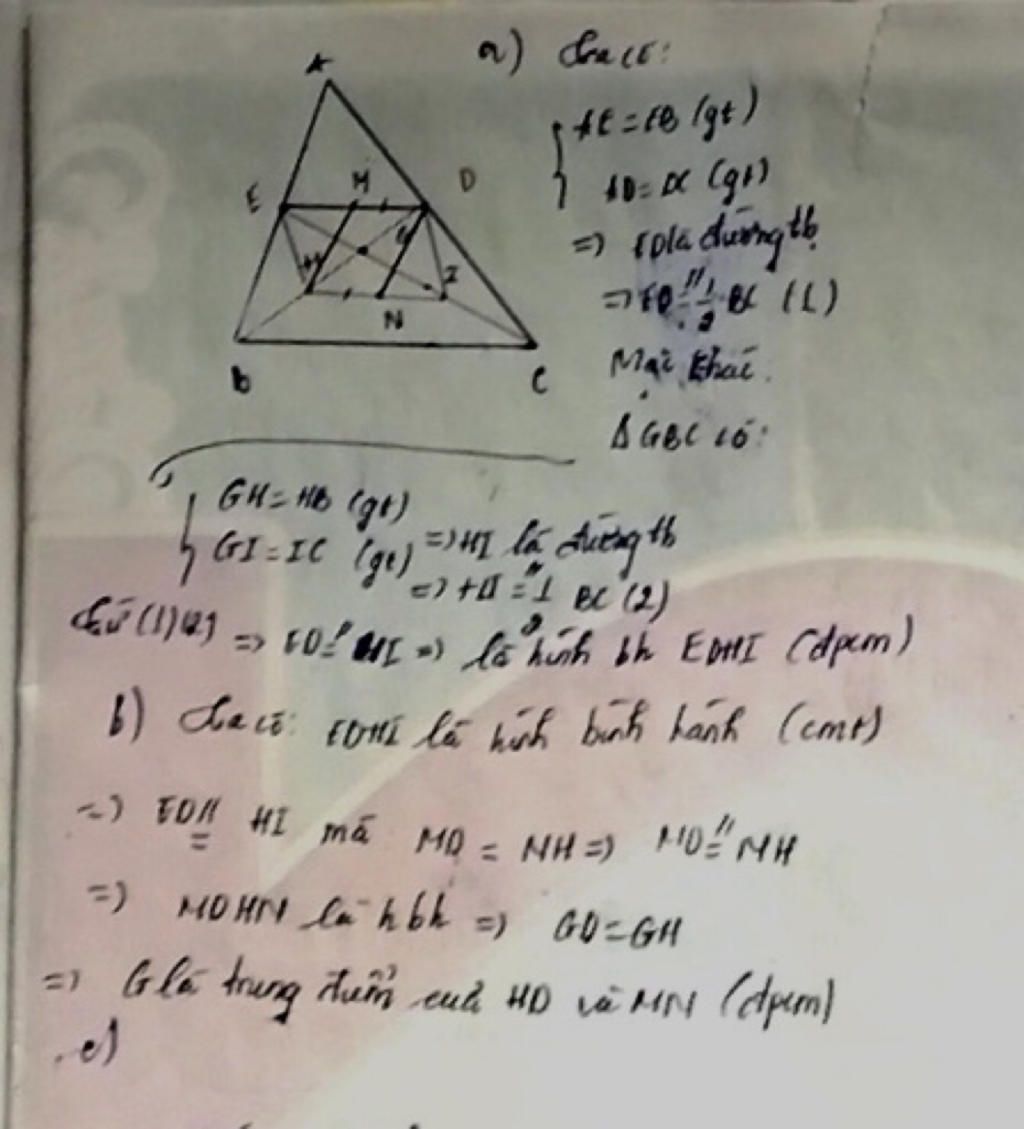 A
E
M
D
H
G
I
N
B
C
a) Ta có:
AE = EB (gt)
AD = DC (gt)
=> ED là đường tb
=> ED // = 1/2 BC (1)
Mặt khác
Δ GBC có:
GH = HB (gt)
GI = IC (gt) => HI là đường tb
=> HI // = 1/2 BC (2)
Từ (1) (2) => ED // = HI => là hình bh EDHI (đpcm)
b) Ta có: EDHI là hình bình hành (cmt)
=> ED // = HI mà MD = NH => MD // = NH
=> MDHN là hbh => GD = GH
=> G là trung điểm của HD và MN (đpcm)
c)